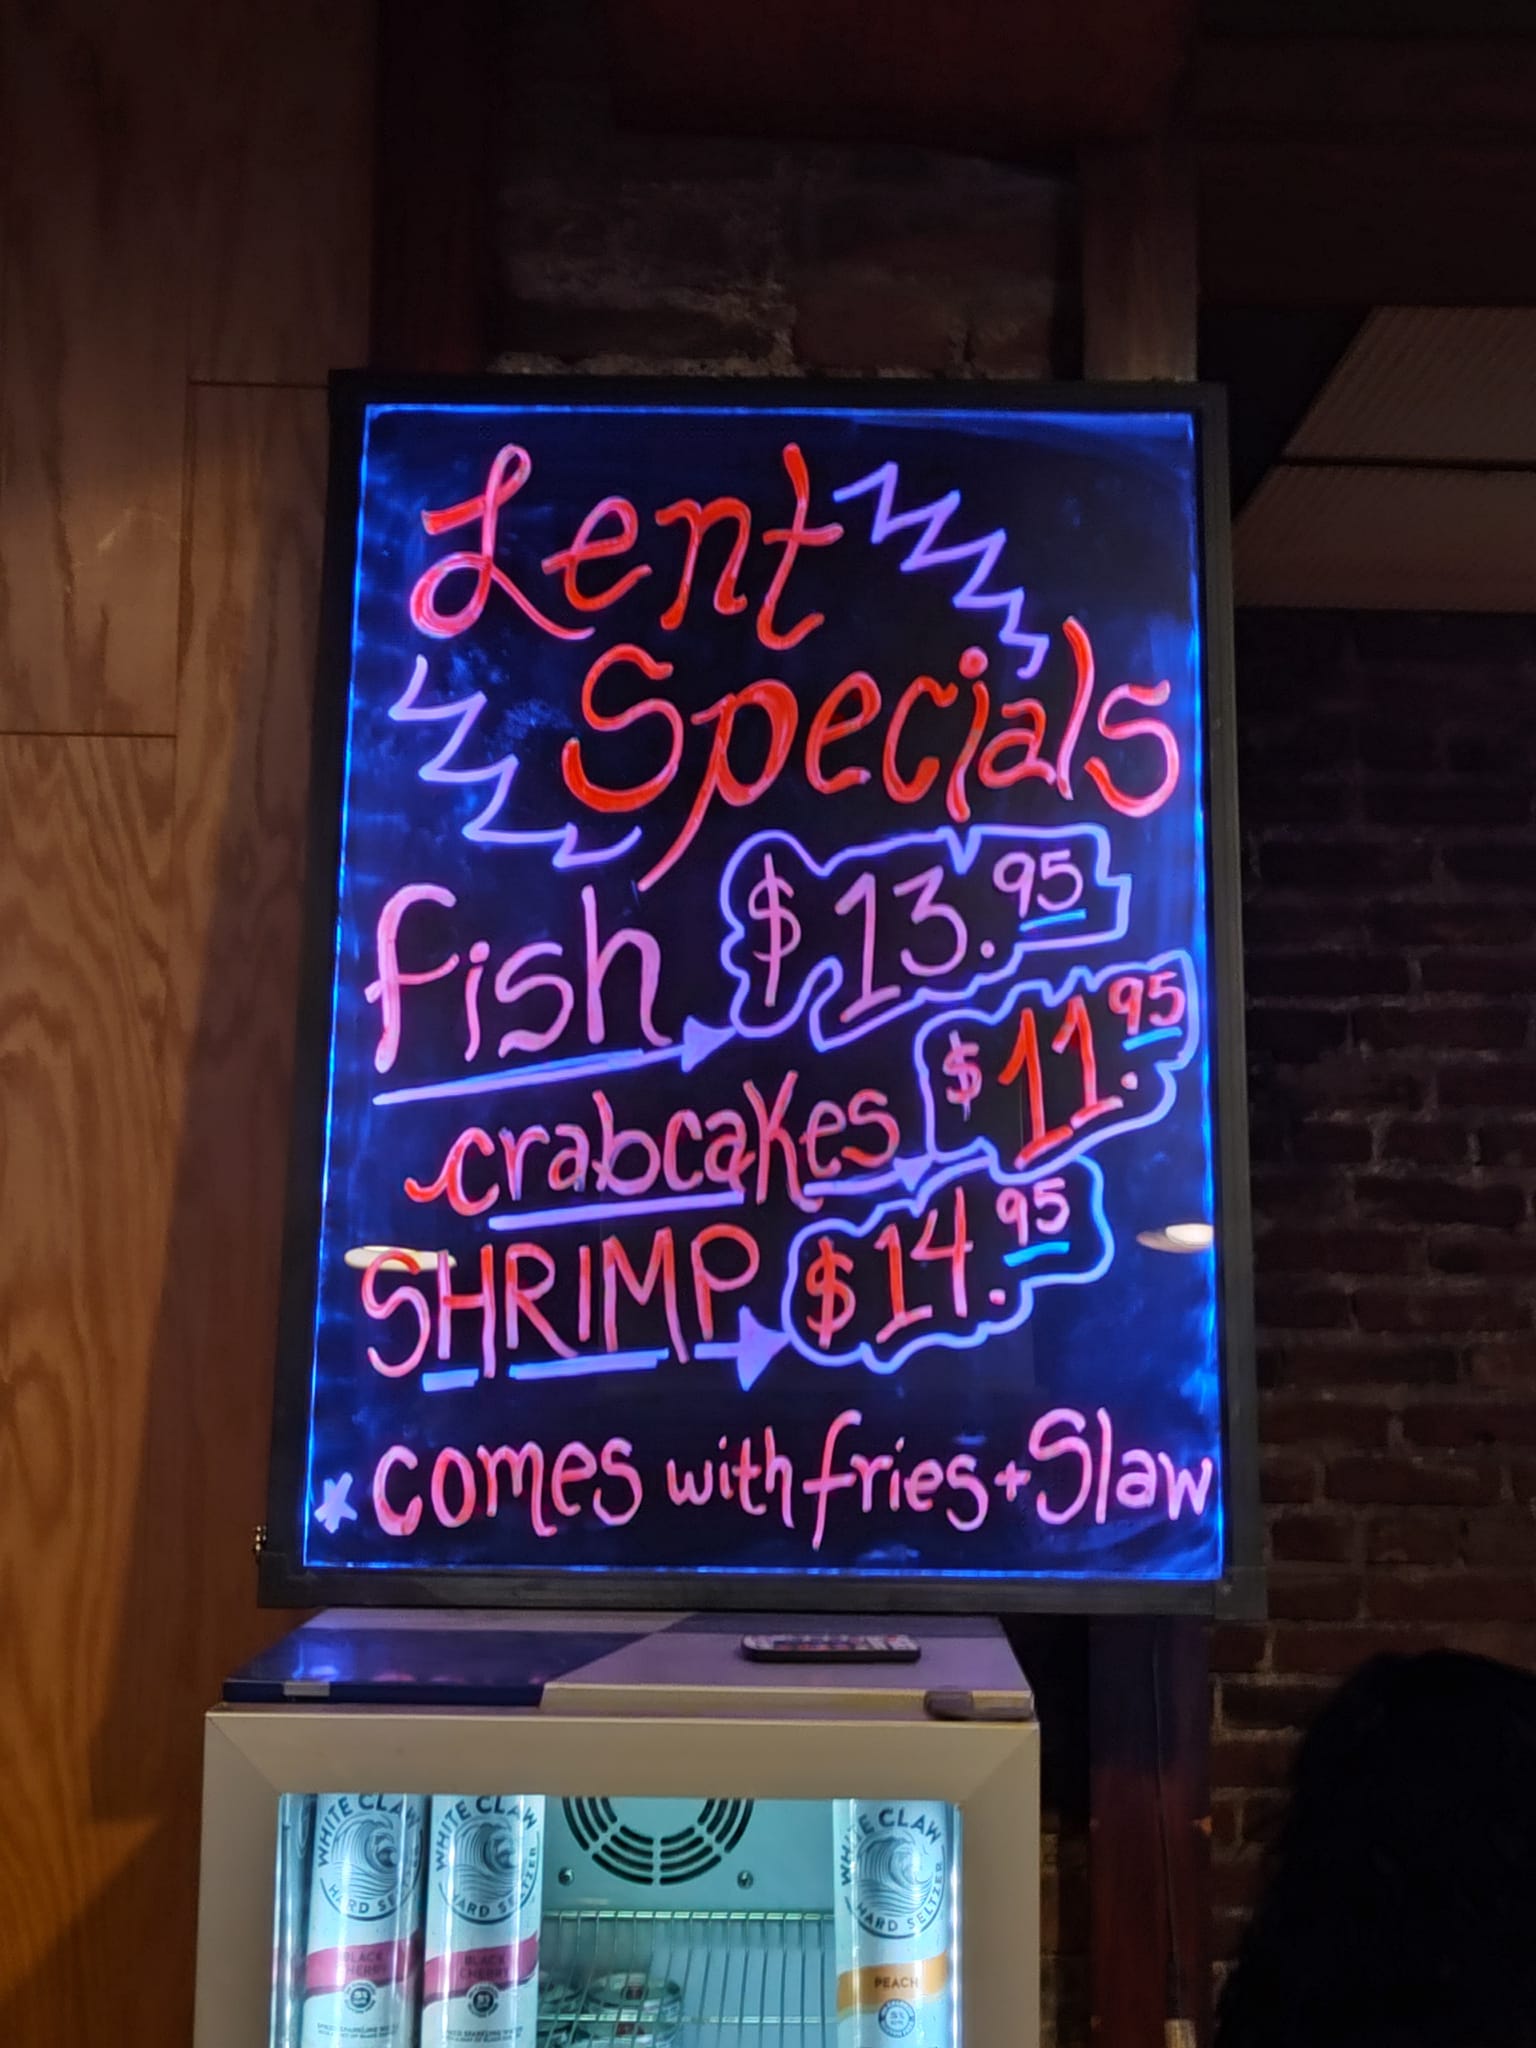 Lent
Specials
fish $13.95
crabcakes $11.95
SHRIMP $14.95
* comes with fries + Slaw
WHITE CLAW
HARD SELTZER
BLACK
CHERRY
WHITE CLAW
HARD SELTZER
BLACK
CHERRY
WHITE CLAW
HARD SELTZER
PEACH